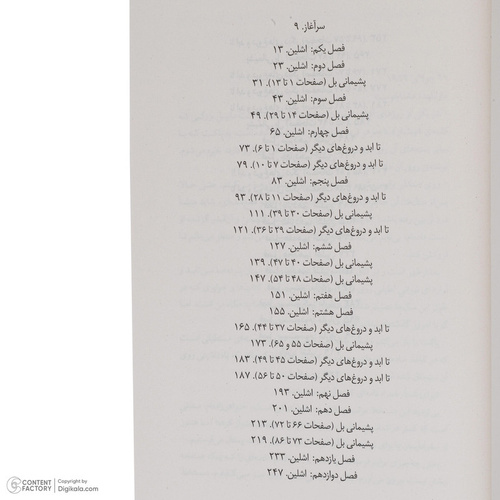 سرآغاز. ۹
فصل یکم: اشلین. ۱۳
فصل دوم: اشلین. ۲۳
پشیمانی بل (صفحات ۱ تا ۱۳). ۳۱
فصل سوم: اشلین. ۴۳
پشیمانی بل (صفحات ۱۴ تا ۲۹). ۴۹
فصل چهارم: اشلین. ۶۵
تا ابد و دروغ‌های دیگر (صفحات ۱ تا ۶). ۷۳
تا ابد و دروغ‌های دیگر (صفحات ۷ تا ۱۰). ۷۹
فصل پنجم: اشلین. ۸۳
تا ابد و دروغ‌های دیگر (صفحات ۱۱ تا ۲۸). ۹۳
پشیمانی بل (صفحات ۳۰ تا ۳۹). ۱۱۱
تا ابد و دروغ‌های دیگر (صفحات ۲۹ تا ۳۶). ۱۲۱
فصل ششم: اشلین. ۱۲۷
پشیمانی بل (صفحات ۴۰ تا ۴۷). ۱۳۹
پشیمانی بل (صفحات ۴۸ تا ۵۴). ۱۴۷
فصل هفتم: اشلین. ۱۵۱
فصل هشتم: اشلین. ۱۵۵
تا ابد و دروغ‌های دیگر (صفحات ۳۷ تا ۴۴). ۱۶۵
پشیمانی بل (صفحات ۵۵ و ۶۵). ۱۷۳
تا ابد و دروغ‌های دیگر (صفحات ۴۵ تا ۴۹). ۱۸۳
تا ابد و دروغ‌های دیگر (صفحات ۵۰ تا ۵۶). ۱۸۷
فصل نهم: اشلین. ۱۹۳
فصل دهم: اشلین. ۲۰۱
پشیمانی بل (صفحات ۶۶ تا ۷۲). ۲۱۳
پشیمانی بل (صفحات ۷۳ تا ۸۶). ۲۱۹
فصل یازدهم: اشلین. ۲۳۳
فصل دوازدهم: اشلین. ۲۴۷
CONTENT FACTORY
Copyright by
Digikala.com